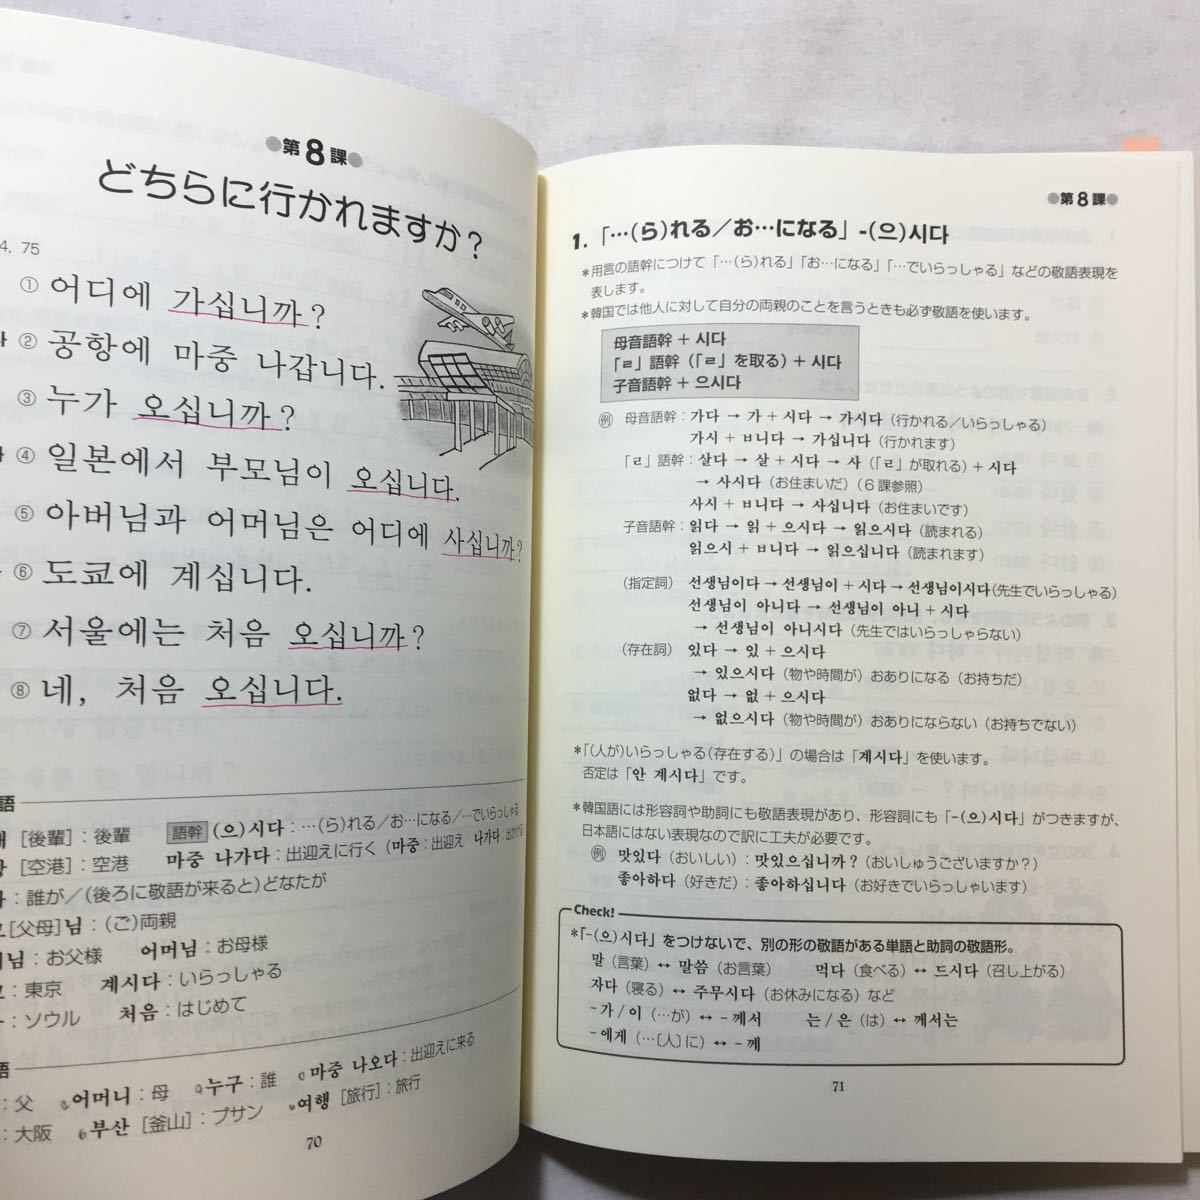 第8課
どちらに行かれますか?
4. 75
① 어디에 가십니까?
② 공항에 마중 나갑니다.
③ 누가 오십니까?
④ 일본에서 부모님이 오십니다.
⑤ 아버님과 어머님은 어디에 사십니까?
⑥ 도쿄에 계십니다.
⑦ 서울에는 처음 오십니까?
⑧ 네, 처음 오십니다.
語
[後輩]:後輩 語幹 (으)시다:…(ら)れる/お…になる/…でいらっしゃる
[空港]:空港 마중 나가다:出迎えに行く (마중:出迎え 나가다:出かける
:誰が/(後ろに敬語が来ると)どなたが
[父母]님:(ご)両親
님:お父様 어머님:お母様
:東京 계시다:いらっしゃる
:ソウル 처음:はじめて
語
:父 어머니:母 누구:誰 마중 나오다:出迎えに来る
:大阪 부산[釜山]:プサン 여행[旅行]:旅行
70
第8課
1.「…(ら)れる/お…になる」-(으)시다
*用言の語幹につけて「…(ら)れる」「お…になる」「…でいらっしゃる」などの敬語表現を
表します。
*韓国では他人に対して自分の両親のことを言うときも必ず敬語を使います。
母音語幹 + 시다
「ㄹ」語幹(「ㄹ」を取る)+ 시다
子音語幹 + 으시다
例 母音語幹:가다 → 가 + 시다 → 가시다(行かれる/いらっしゃる)
가시 + ㅂ니다 → 가십니다(行かれます)
「ㄹ」語幹:살다 → 살 + 시다 → 사(「ㄹ」が取れる)+ 시다
→ 사시다(お住まいだ)(6課参照)
사시 + ㅂ니다 → 사십니다(お住まいです)
子音語幹:읽다 → 읽 + 으시다 → 읽으시다(読まれる)
읽으시 + ㅂ니다 → 읽으십니다(読まれます)
(指定詞) 선생님이다 → 선생님이 + 시다 → 선생님이시다(先生でいらっしゃる)
선생님이 아니다 → 선생님이 아니 + 시다
→ 선생님이 아니시다(先生ではいらっしゃらない)
(存在詞) 있다 → 있 + 으시다
→ 있으시다(物や時間が)おありになる(お持ちだ)
없다 → 없 + 으시다
→ 없으시다(物や時間が)おありにならない(お持ちでない)
*「(人が)いらっしゃる(存在する)」の場合は「계시다」を使います。
否定は「안 계시다」です。
*韓国語には形容詞や助詞にも敬語表現があり、形容詞にも「-(으)시다」がつきますが、
日本語にはない表現なので訳に工夫が必要です。
例 맛있다(おいしい):맛있으십니까?(おいしゅうございますか?)
좋아하다(好きだ):좋아하십니다(お好きでいらっしゃいます)
Check!
*「-(으)시다」をつけないで、別の形の敬語がある単語と助詞の敬語形。
말(言葉)↔ 말씀(お言葉) 먹다(食べる)↔ 드시다(召し上がる)
자다(寝る)↔ 주무시다(お休みになる)など
-가/이(…が)↔ -께서 는/은(は)↔ -께서는
-에게(…〔人〕に)↔ -께
71